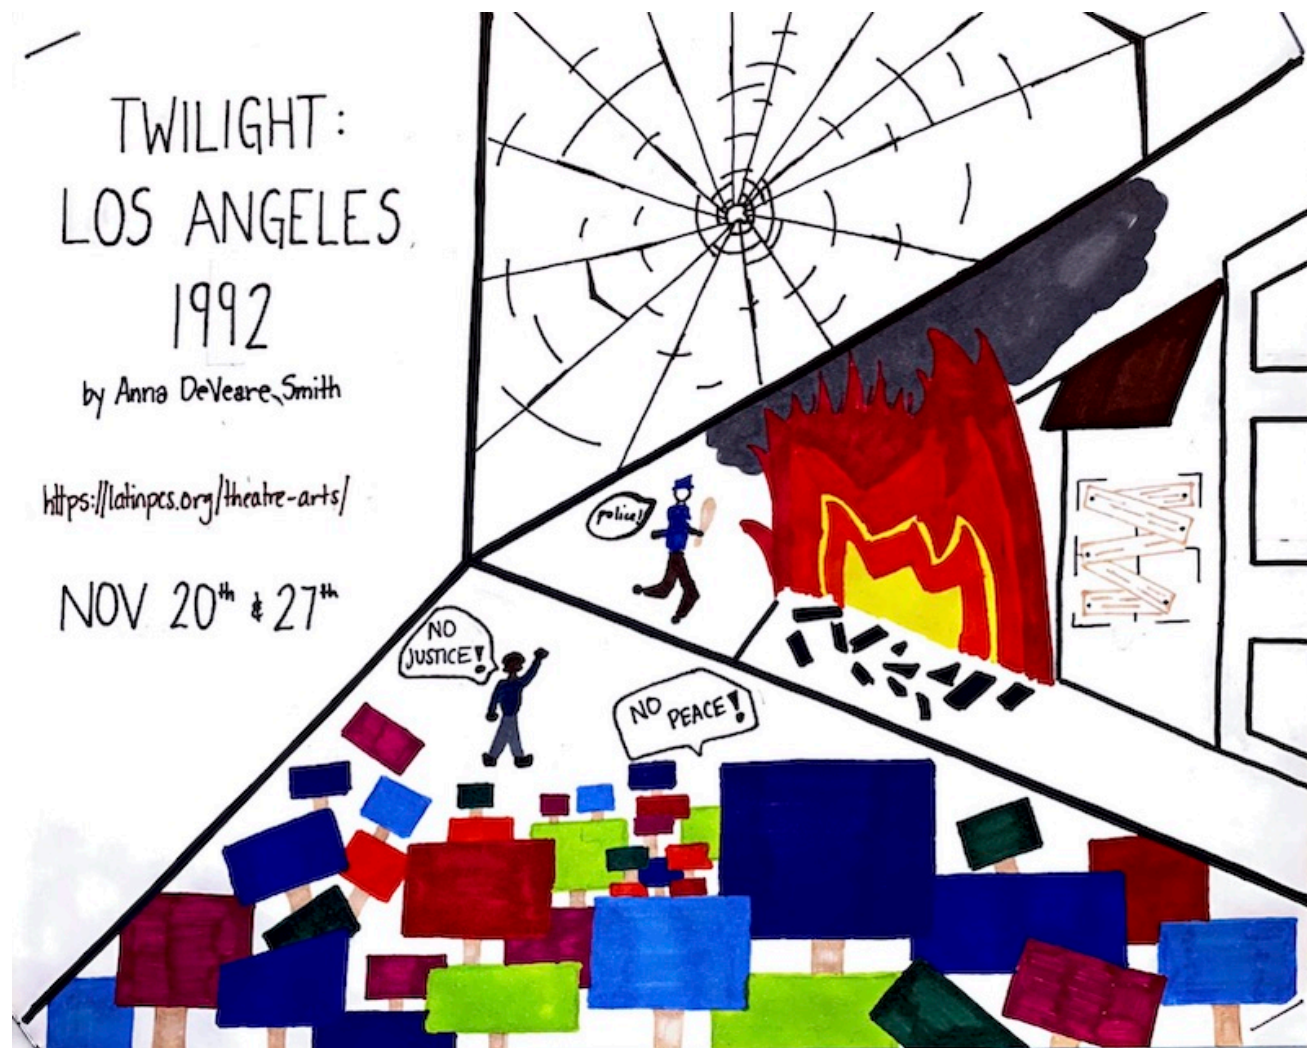 TWILIGHT:
LOS ANGELES
1992
by Anna DeVeare Smith
https://latinpcs.org/theatre-arts/
NOV. 20th & 27th
police!!
NO
JUSTICE!
NO PEACE!